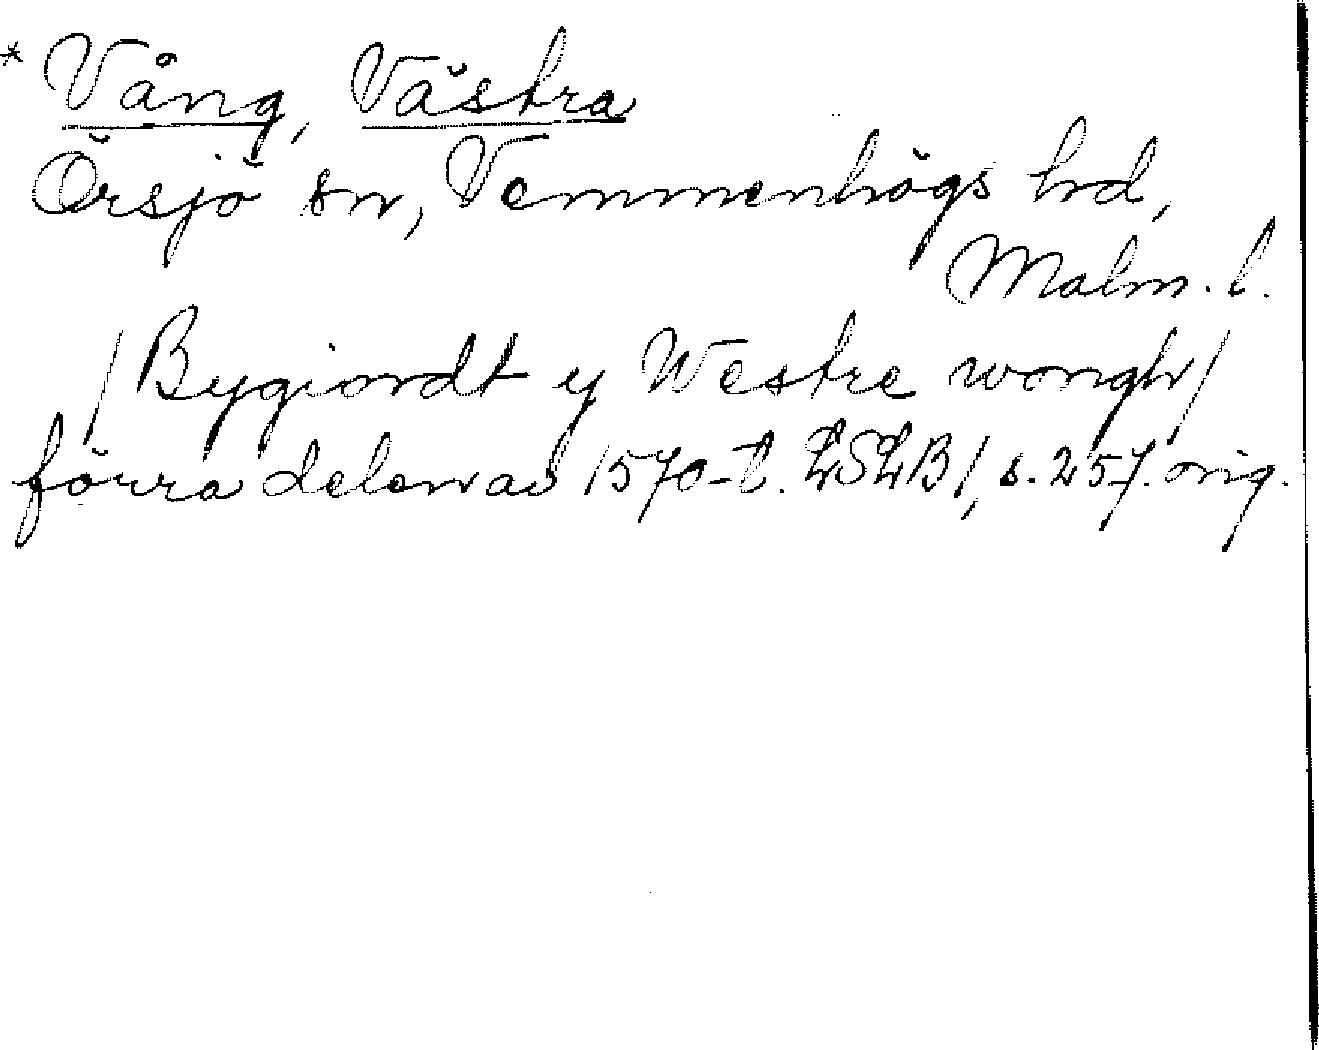 * Vång, Västra
Örsjö sn, Vemmenhögs hd,
Malm. l.
/Bygiordt y Westre wongh/
förra delen av 1570-t. LSLB/, s. 257. orig.